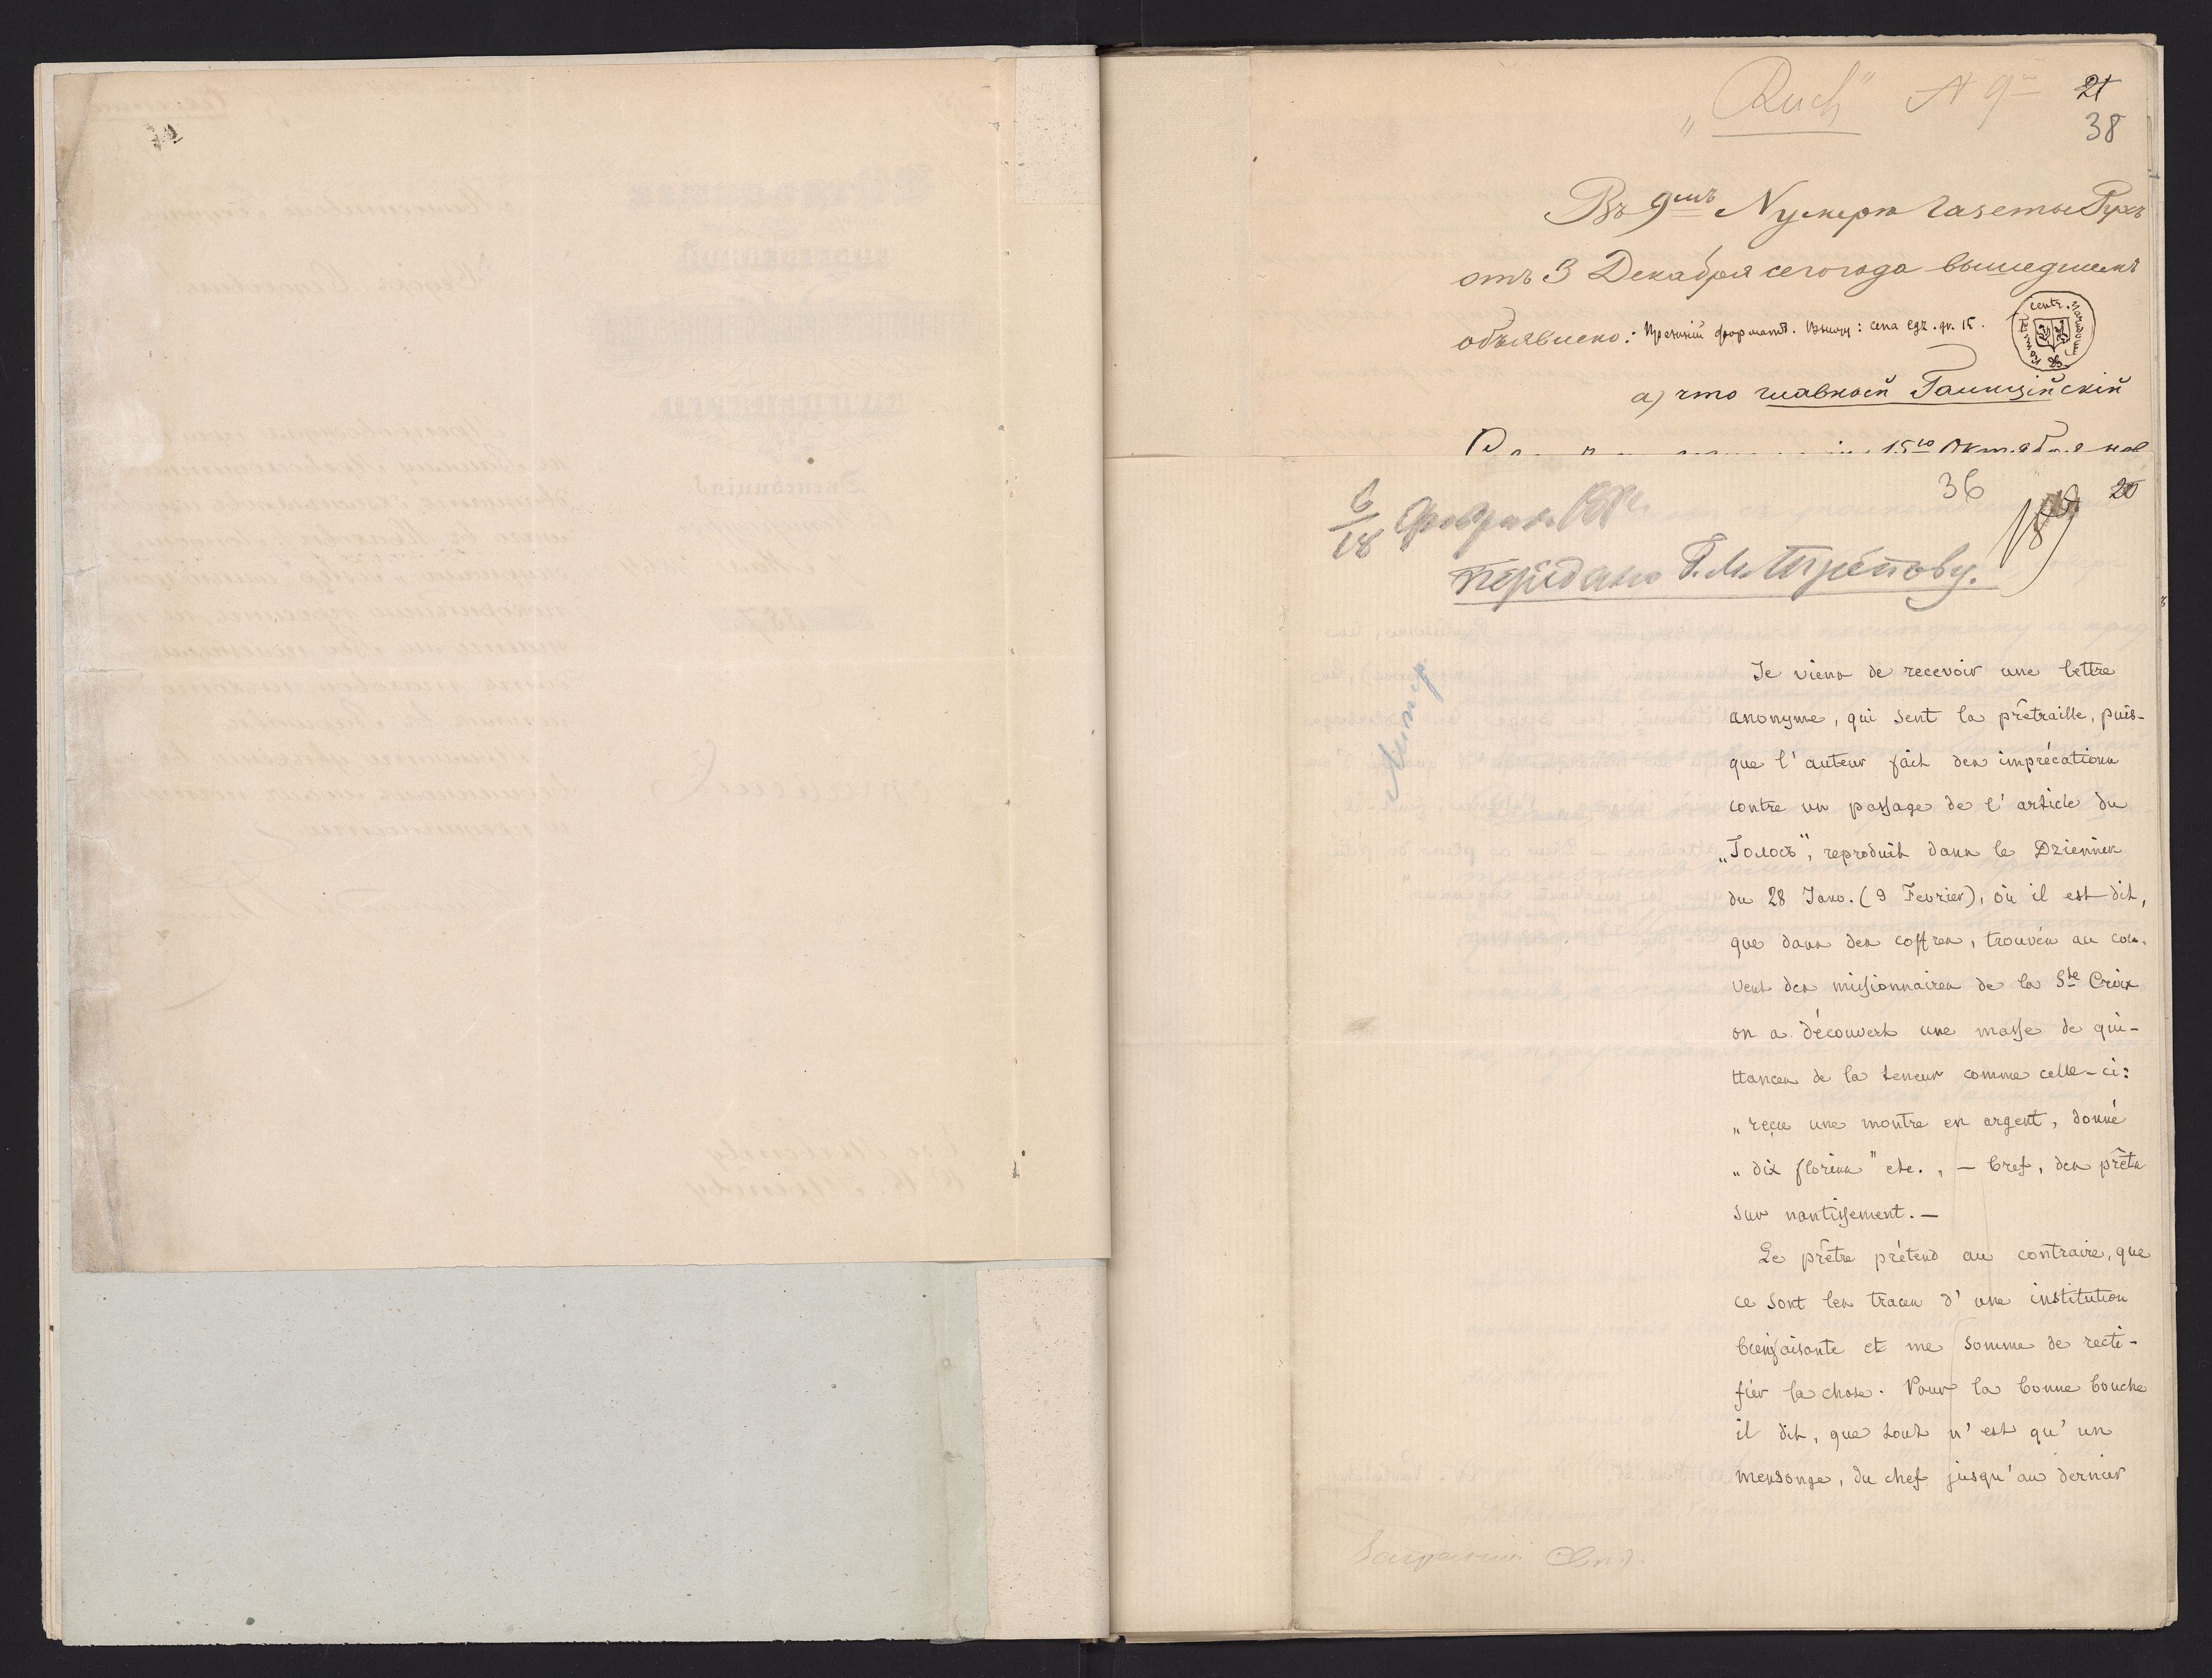 „Ruch“ N 9й
21
38
Въ 9мъ Нумерѣ газеты Рухъ
отъ 3 Декабря сего года вышедшемъ
объявлено: Прежній форматъ. Внизу: Cena egz. gr. 15.
Komitet centr. narodowy
а) что главный Галиційскій
15го Октября нов
36
20
6/18 Февраля
передано Г. М. Трепову.
Je viens de recevoir une lettre
anonyme, qui sent la prêtraille, puis-
que l'auteur fait des imprécations
contre un passage de l'article du
„Голосъ“, reproduit dans le Dziennik
du 28 Janv. (9 Fevrier), où il est dit,
que dans des coffres, trouvés au cou-
vent des missionnaires de la Ste Croix
on a découvert une masse de qui-
ttances de la teneur comme celle-ci:
„reçu une montre en argent, donné
„dix florins" etc., — bref, des prêts
sur nantissement. —
Le prêtre prétend au contraire, que
ce sont les traces d'une institution
bienfaisante et me somme de recti-
fier la chose. Pour la bonne bouche
il dit, que tout n'est qu'un
mensonge, du chef jusqu'au dernier